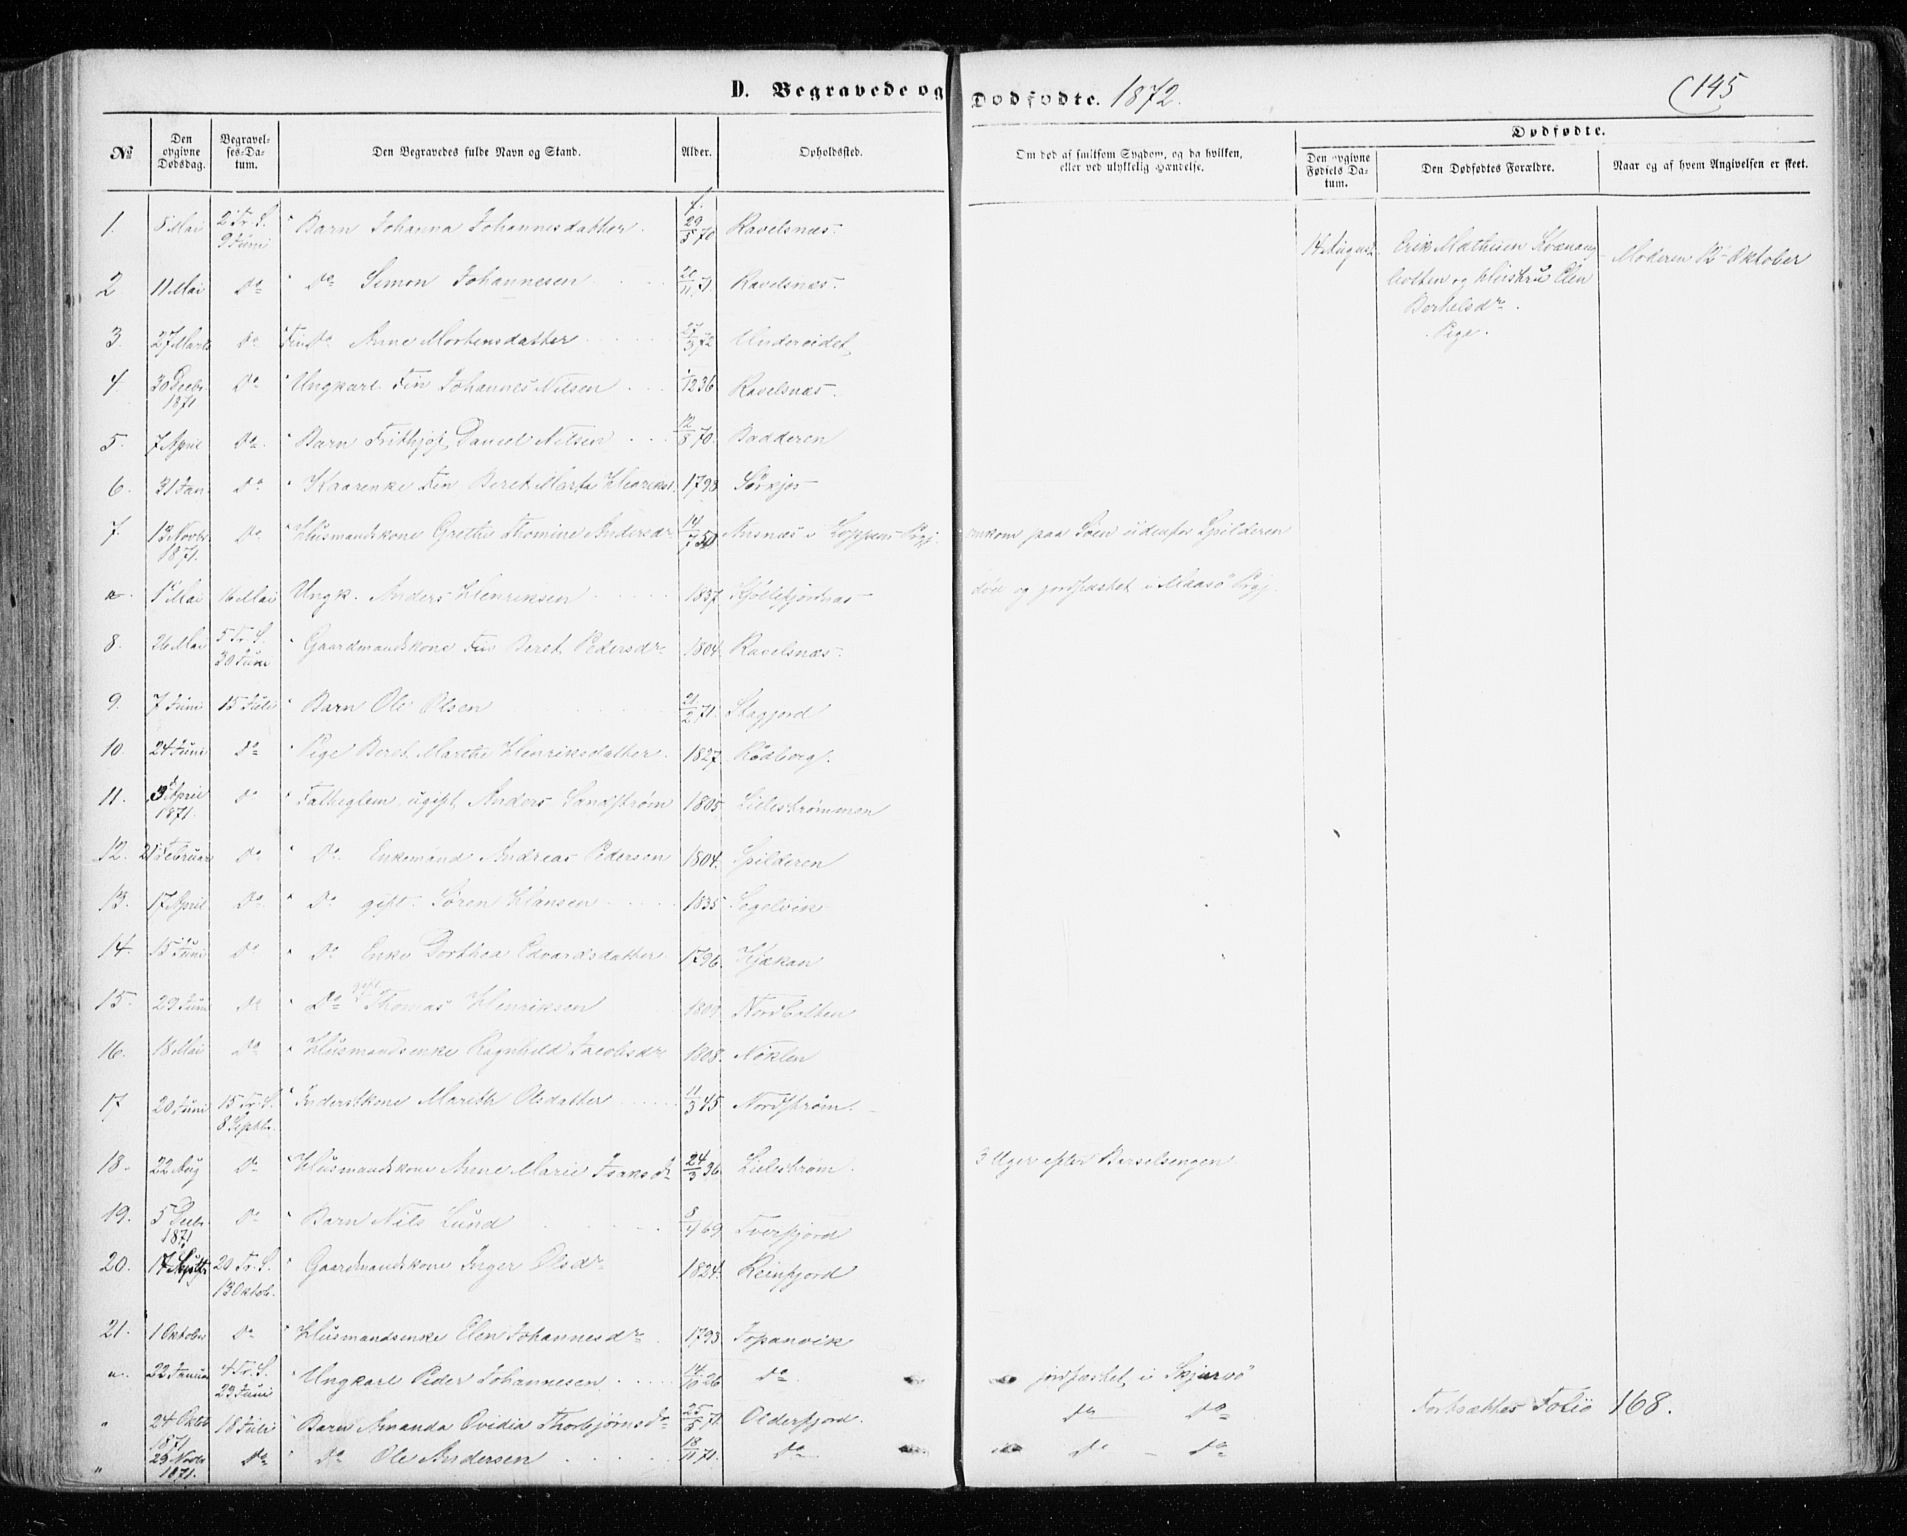 D. Begravede og Dødfødte. 1872.
145
No
Den opgivne Dødsdag.
Begravelses-Datum.
Den Begravedes fulde Navn og Stand.
Alder.
Opholdssted.
Om død af smitsom Sygdom, og da hvilken, eller ved ulykkelig Hændelse.
Dødfødte.
Den opgivne Fødsels Datum.
Den Dødfødtes Forældre.
Naar og af hvem Angivelsen er skeet.
1. 8 Mai 2 Tr. S. 9 Juni Barn Johanna Johannesdatter f. 29/5 70 Ravelsnæs
2 11 Mai Do Do Simon Johannesen 20/11 71. Ravelsnæs
3. 27 Marts Do Fin Do Anne Mortensdatter 25/3 72
4 30 Decbr. 1871 Do Ungkarl Fin Johannes Nilsen 1236 Ravelsnæs
5. 7 April Do Barn Frithjof Daniel Nilsen 12/5 70. Badderen
6. 31 Jan Do Fin Beret Marta Henriksd. 1798 Sørkjos
7. 13 Novbr. 1871. Do Husmandskone Grethe Thomine Andersdr 14/7 50 Ansnæs i Loppens Prgj. omkom paa Søen udenfor Spilderen
a. 1 Mai 16 Mai Ungk. Anders Henriksen 1837. døde og jordfæstet i Maasø Prgj.
8. 26 Mai 5 Tr. S. 30 Juni Gaardmandskone Fin Beret Pedersdr 1804. Ravelsnæs
9. 7 Juni 15 Juli Barn Ole Olsen 21/2 71. Stagjord
10. 24 Juni Do Pige Beret Marthe Henriksdatter 1827. Rødberg
11. 3 April 1871. Do Fatteglem ugift Anders Sandstrøm 1805. Lillestrømmen
12. 21 Februar Do Do Enkemand Andreas Pedersen 1804. Spilderen
13. 17 April Do Do gift Søren Hansen 1835 Segelvik
14. 15 Juni Do Do Enke Dorthea Edvardsdatter 1796. Kjækan
15. 29 Juni Do Do gift Thomas Henriksen 1809.
16. 18 Mai Do Husmandsenke Ragnhild Jacobsdr 1808. Nøklen
17 20 Juni 15 Tr. S. 8 Septbr. Inderstkone Marith Olsdatter 11/3 45. Nordstrøm.
18. 22 Aug Do Husmandskone Anne Marie Isaksdr 24/3 36 Lillestrøm. 3 Uger efter Barselsengen
19. 5 Decbr. 1871 Do Barn Nils Lund 8/4 69 Tverfjord
20. 17 20 Tr. S. 13 Oktob. Gaardmandskone Inger Olsdr 1824. Reinfjord
21. 1 Oktober Do Husmandsenke Elen Johannesdr 1793 Jopanvik
a. 22 Januar 4 Tr. S. 23 Juni Ungkarl Peder Johannesen 14/10 26 Do jordfæstet i Skjervø
" 24 Oktob. 1871 18 Juli Barn Amanda Ovidia Thorbjørnsdr 25/5 71. Olderfjord. Do Do
" 23 Novbr 1871. Do Do Ole Andersen 18/11 71. Do Do Do
14 August Erik Mathisen Kvænang
og Hustru Elen
Bertelsdr.
Pige.
Moderen 12 Oktober
Fortsættes Folio 168.